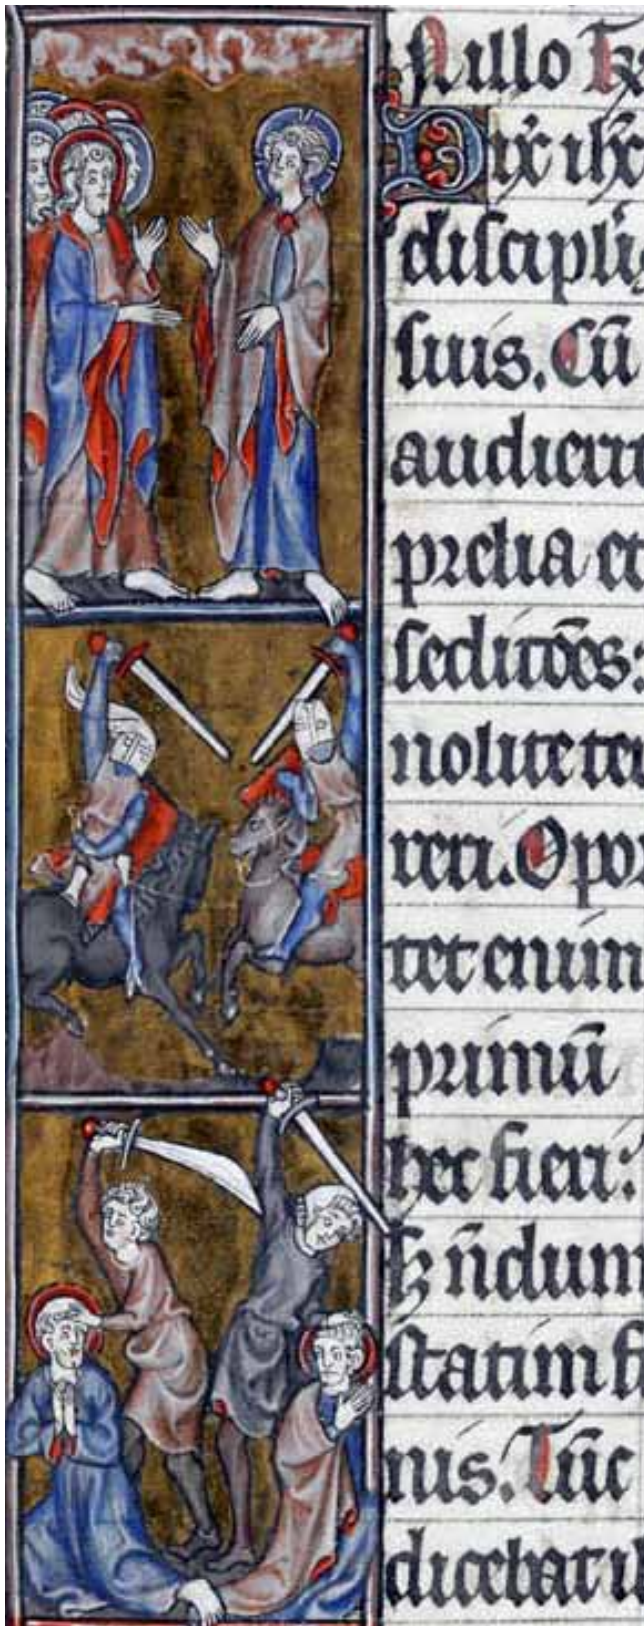 In illo tp̄
Dix̄ ihc̄
discipul
suis. Cū
audierit
prelia et
seditōes:
nolite ter
reri. Opor
tet enim
primū
hec fieri:
sȝ n̄dum
statim fi
nis. Tūc
dicebat il